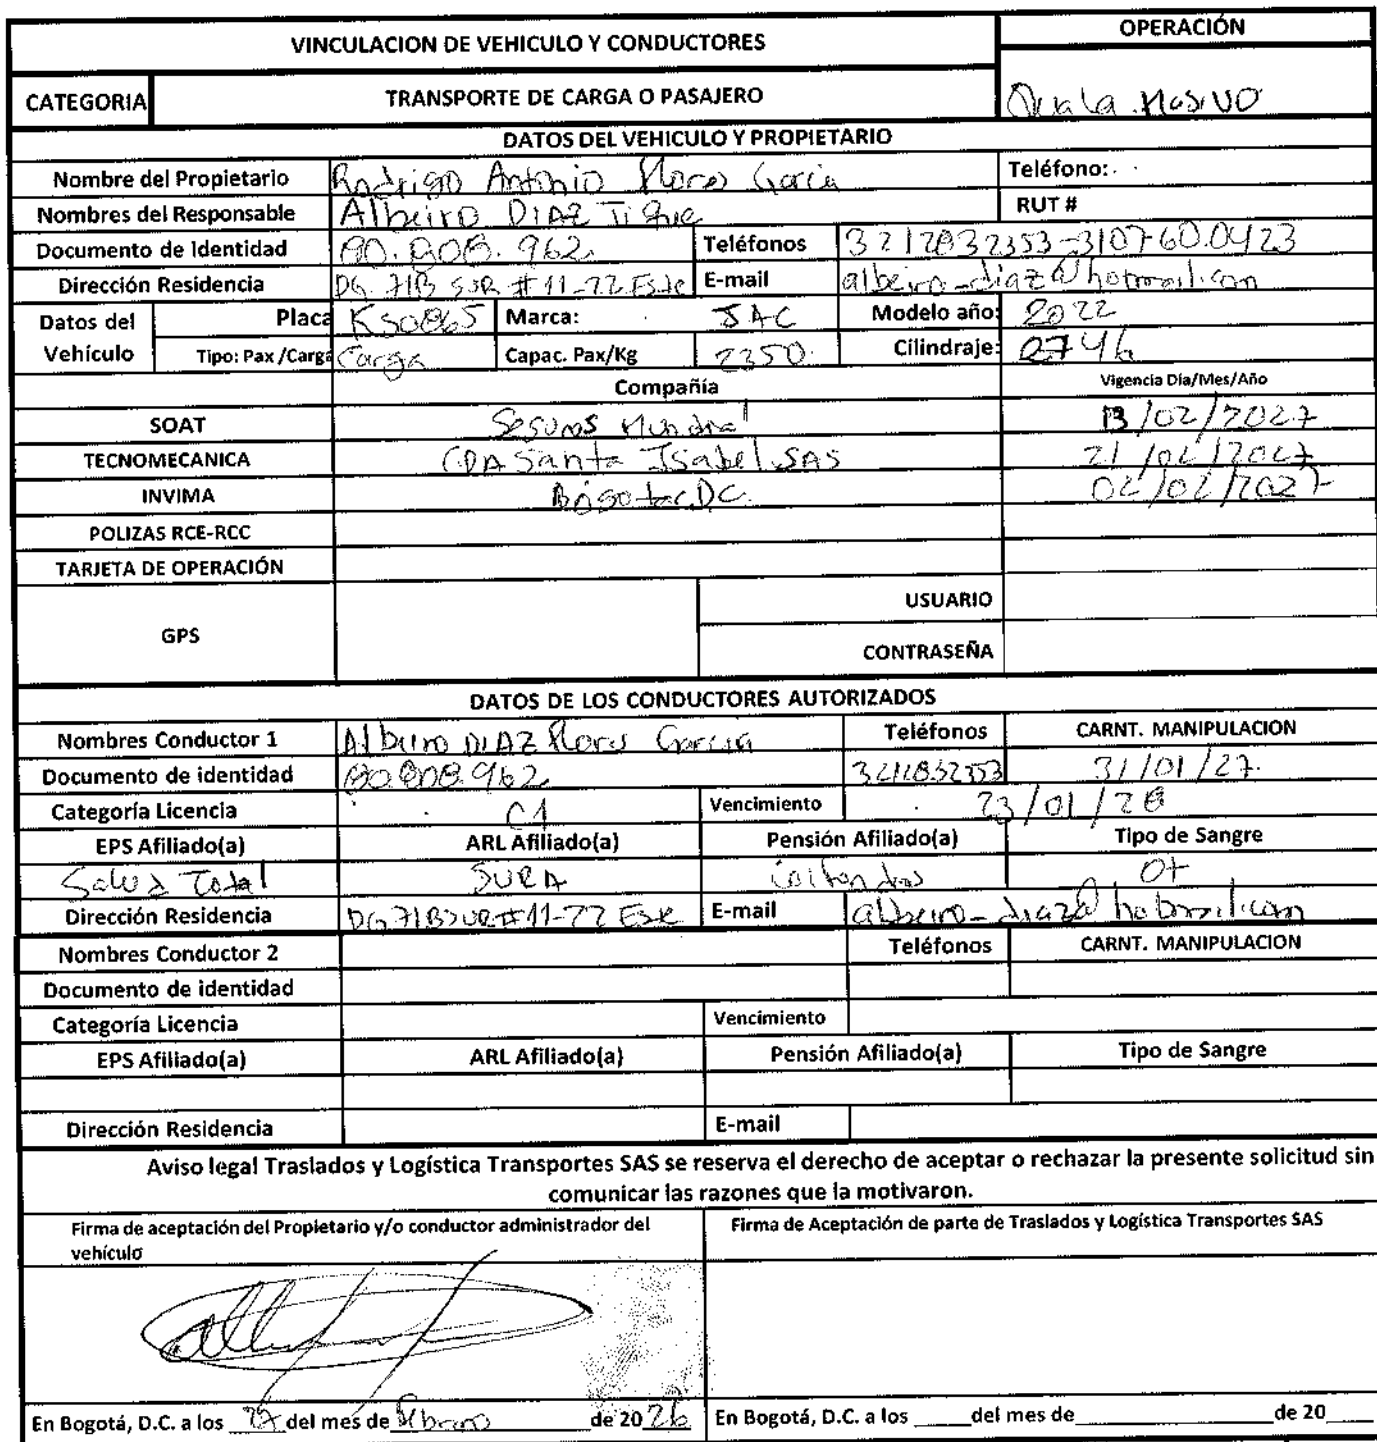 VINCULACION DE VEHICULO Y CONDUCTORES OPERACIÓN
CATEGORIA TRANSPORTE DE CARGA O PASAJERO Quala Masivo
DATOS DEL VEHICULO Y PROPIETARIO
Nombre del Propietario Rodrigo Antonio Flores Garcia Teléfono:
Nombres del Responsable Albeiro DIAZ Tique RUT #
Documento de Identidad 80.808.962 Teléfonos 3212832353-3107600423
Dirección Residencia DG. 71B SUR # 11-72 Este E-mail albeiro_diaz@hotmail.com
Datos del Vehículo Placa KSO865 Marca: JAC Modelo año: 2022
Tipo: Pax /Carga Carga Capac. Pax/Kg 2350. Cilindraje: 2746
Compañía Vigencia Dia/Mes/Año
SOAT Seguros Mundial 13/02/2027
TECNOMECANICA CDA Santa Isabel SAS 21/02/2027
INVIMA Bogota DC. 02/02/2027
POLIZAS RCE-RCC
TARJETA DE OPERACIÓN
GPS USUARIO
CONTRASEÑA
DATOS DE LOS CONDUCTORES AUTORIZADOS
Nombres Conductor 1 Albeiro DIAZ Flores Garcia Teléfonos CARNT. MANIPULACION
Documento de identidad 80.808.962 3212832353 31/01/27.
Categoría Licencia C1 Vencimiento 23/01/28
EPS Afiliado(a) ARL Afiliado(a) Pensión Afiliado(a) Tipo de Sangre
Salud Total SURA Colfondos O+
Dirección Residencia DG 71B SUR #11-72 Este E-mail albeiro_diaz@hotmail.com
Nombres Conductor 2 Teléfonos CARNT. MANIPULACION
Documento de identidad
Categoría Licencia Vencimiento
EPS Afiliado(a) ARL Afiliado(a) Pensión Afiliado(a) Tipo de Sangre
Dirección Residencia E-mail
Aviso legal Traslados y Logística Transportes SAS se reserva el derecho de aceptar o rechazar la presente solicitud sin
comunicar las razones que la motivaron.
Firma de aceptación del Propietario y/o conductor administrador del vehículo Firma de Aceptación de parte de Traslados y Logística Transportes SAS
En Bogotá, D.C. a los 27 del mes de Febrero de 2026 En Bogotá, D.C. a los _____ del mes de _____ de 20___